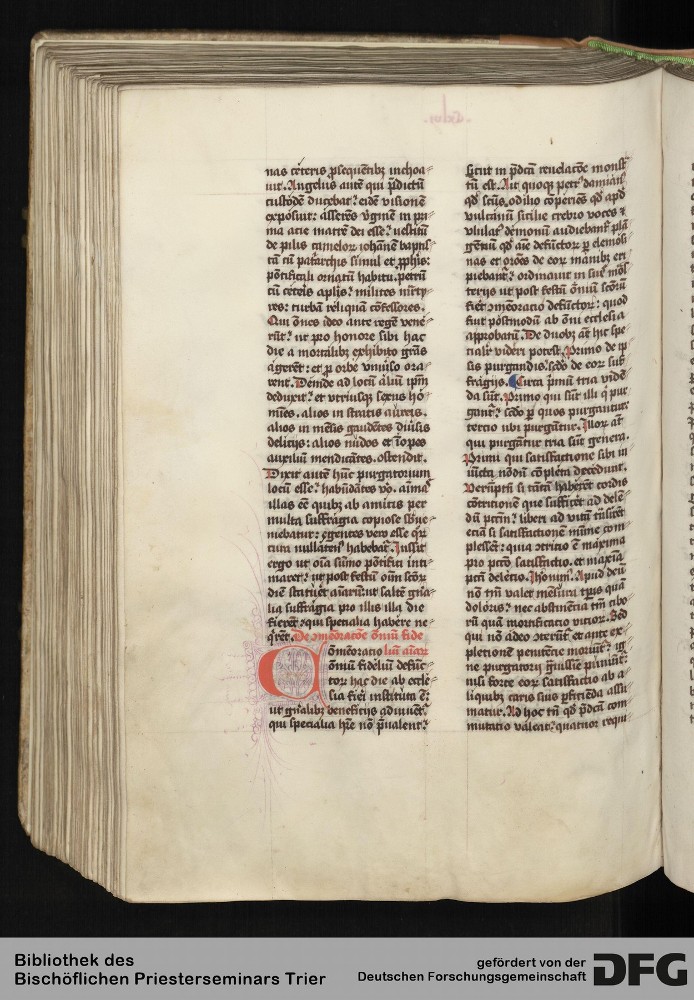 nas ceteris p̄sequentibꝫ inchoa⸗
uit. Angelus autē qui p̄dictū
custodē ducebat: eidē visionē
exposuit: asserēs v̓ginē in pri⸗
ma acie matrē dei esse: uestitū
de pilis camelorꝫ iohānē baptis⸗
tā cū pat̓archis simul et ꝓphīs:
pōtificali ornatū habitu. petrū
cū ceteris aplīs: milites m̄rty⸗
res: turbā reliquā cōfessores.
Qui ōnes ideo ante regē vene⸗
rūt: ut pro honore sibi hac
die a mortalibꝫ exhibito grās
agerēt: et ꝑ orbe vniūso ora⸗
rent. Deinde ad locū aliū ip̄m
deduxit: et utriusqꝫ sexus ho⸗
mīes. alios in stratis aureis.
alios in mēsis gaudētes diūsis
delicijs: alios nudos et īopes
auxiliū mendicātes. ostendit.
Dixit autē hūc purgatorium
locū esse: habūdātes v̊o. aīmas
illas eē quibꝫ ab amicis per
multa suffragia copiose sb̄ue⸗
niebatur: egentes vero esse qrꝫ
cura nullatenꝰ habebat̓. Iussit
ergo ut oīa sūmo pōtifici inti⸗
maret: ut post festū oīm scōrꝫ
diē statuēt aīarū ut saltē gn̄a⸗
lia suffragia pro illis illa die
fierēt: qui specialia habere ne⸗
q̄rēt. De ɔmēoratōe ōniū fide
Cōmēoratio liū aīarꝫ
ōniū fideliū defūc⸗
torꝫ hac die ab eccle⸗
sia fieri instituta ē:
ut gn̄alibꝫ beneficijs adiuuēt̓.
qui specialia hr̄e nō p̄ualent:
sicut in p̄dcā reuelacōe monst̓
tū est. Ait quoqꝫ petrꝰ damianꝰ
qđ scūs odilo cōperiēs qđ apđ
vulcānū sicilie crebro voces ⁊
vlulatꝰ demonū audiebant̓ plā
gētiū qđ aīe defūctorꝫ ꝑ elemōsi⸗
nas et orōes de eorꝫ manibꝫ eri
piebant̓: ordinauit in suis mōs
terijs ut post festū ōniū scōrū
fiēt ɔmēoratio defūctorꝫ: quod
fuit postmodū ab ōni ecclesia
approbatū. De duobꝫ aūt hic spe⸗
cialit̓ videri potest. Primo de ip̄
sis purgandis: scđo de eorꝫ suf⸗
fragijs. Circa p̄mū tria vidē⸗
da sūt. Primo qui sūt illi q̓ pur
gant̓: scđo ꝑ quos purgantur:
tercio ubi purgāt̓ur. Illorꝫ aūt
qui purgātur tria sūt genera.
Primi qui satisfactione sibi in
iūctā nōdū cōpletā decedunt.
Verūptn̄ si tātā haberēt cordis
cōtritionē que sufficēt ad delē⸗
dū pctm̄: liberi ad vitā trāsirēt
eciā si satisfactionē mīme com
plessēt: quia ɔtritio ē maxima
pro pctō satisfactio. et maxīa
pcti delecio. Iheronimꝰ. Apud deū
nō tm̄ valet mēsura tp̄is quā
doloris: nec abstinēcia tm̄ cibo
rū quā mortificatio vicior. Sed
qui nō adeo ɔterūt̓ et ante ex⸗
pletionē penitēcie moriūt̓: ig⸗
ne purgatorij g̓uissīe puniūt̓:
nisi forte eorꝫ satisfactio ab a⸗
liquibꝫ caris suis pficiēda assu
matur. Ad hoc tn̄ qđ p̄dcā com
mutatio valeat: quatuor requi⸗
Bibliothek des
Bischöflichen Priesterseminars Trier
gefördert von der
Deutschen Forschungsgemeinschaft
DFG